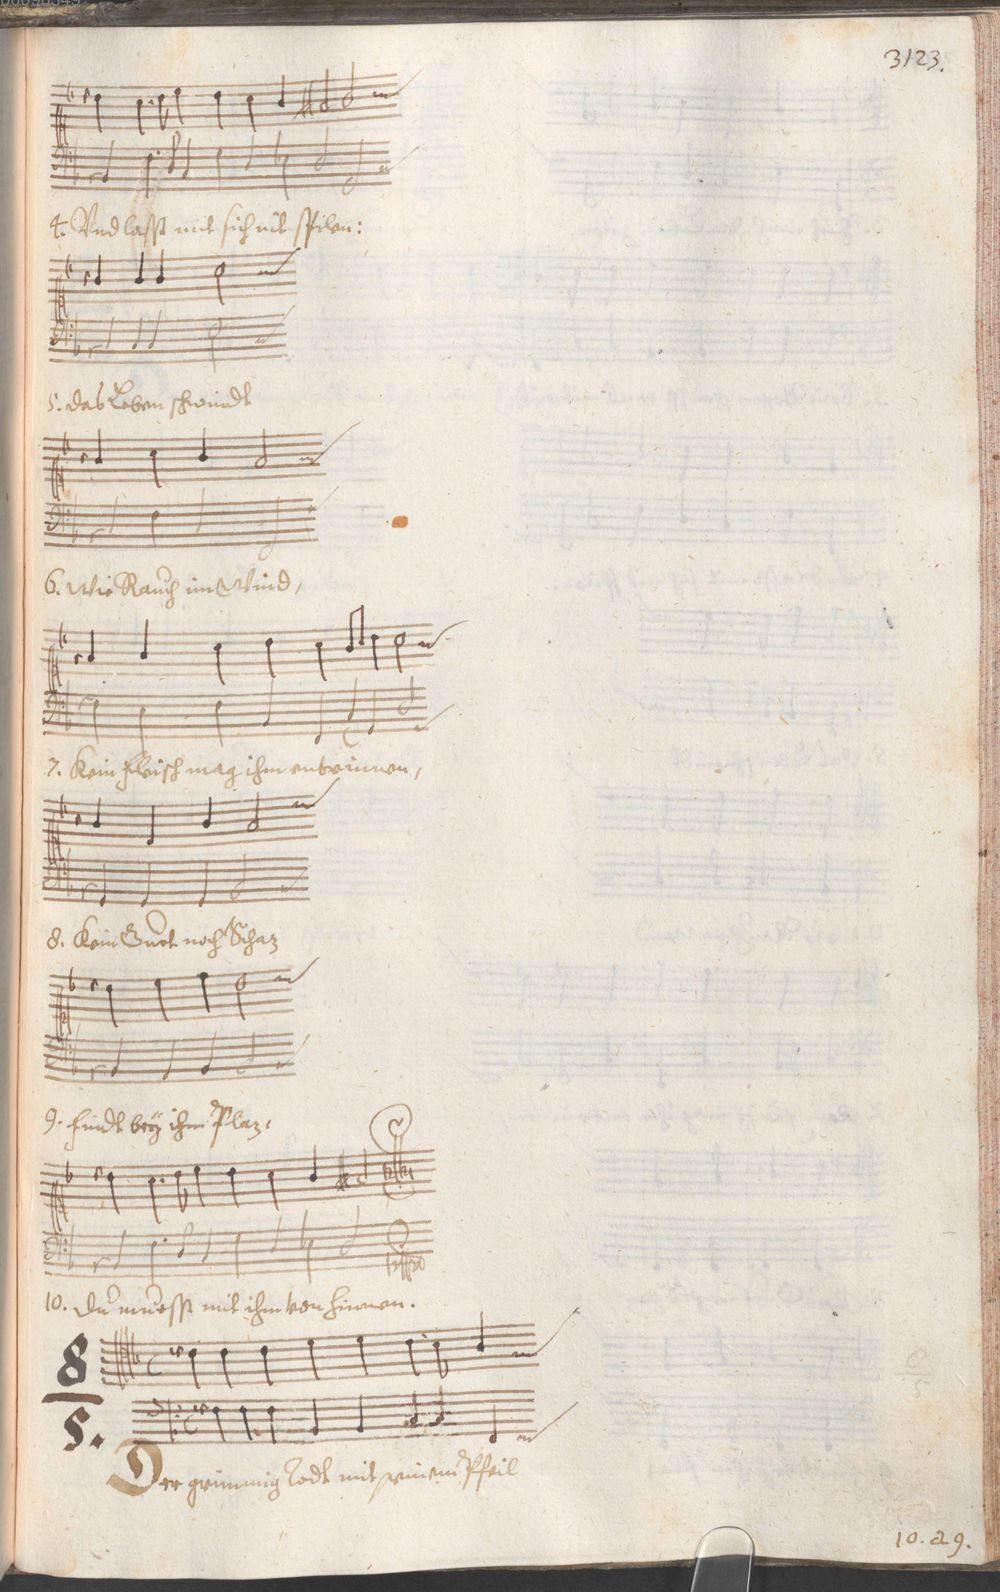 3123.
4. Und lasst mit sich nit spilen:
5. das Leben schwindt
6. Wie Rauch im Wind,
7. Kein fleisch mag ihm entrinnen,
8. Kein Guet noch Schaz
9. findt beÿ ihm Plaz.
10. Du muesst mit ihm von hinnen.
8
5.
Der grimmig Todt mit seinem Pfeil
10.a9.